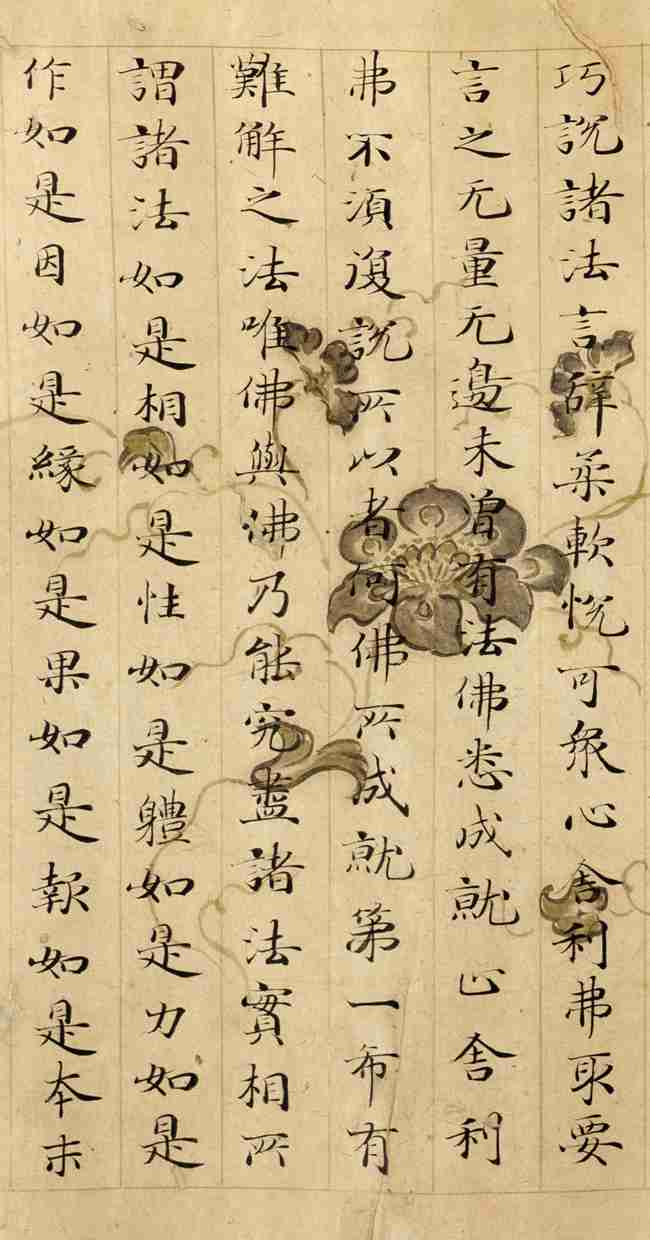 巧說諸法言辭柔軟悅可衆心舍利弗取要
言之无量无邊未曾有法佛悉成就止舍利
弗不須復說所以者何佛所成就第一希有
難解之法唯佛與佛乃能究盡諸法實相所
謂諸法如是相如是性如是體如是力如是
作如是因如是緣如是果如是報如是本末